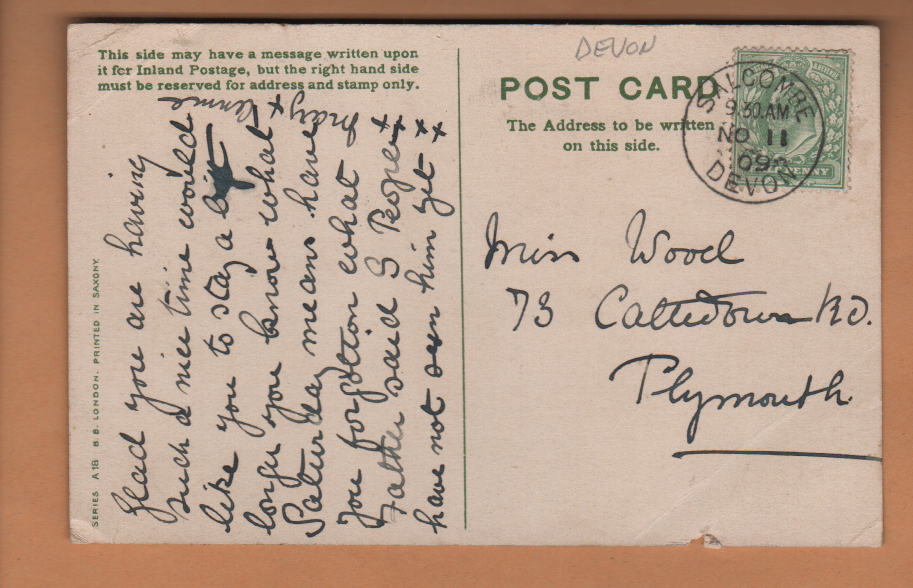 This side may have a message written upon
it for Inland Postage, but the right hand side
must be reserved for address and stamp only.
DEVON
POST CARD
The Address to be written
on this side.
SALCOMBE
9.30 AM
NO 11
09
DEVON
PENNY
Miss Wood
73 Cattedown Rd.
Plymouth
Glad you are having
such a nice time would
like you to stay a bit
longer you know what
Saturday means have
you forgotton what
Father said S People
have not seen him yet
x x x x x
SERIES A 18 B.B. LONDON. PRINTED IN SAXONY.